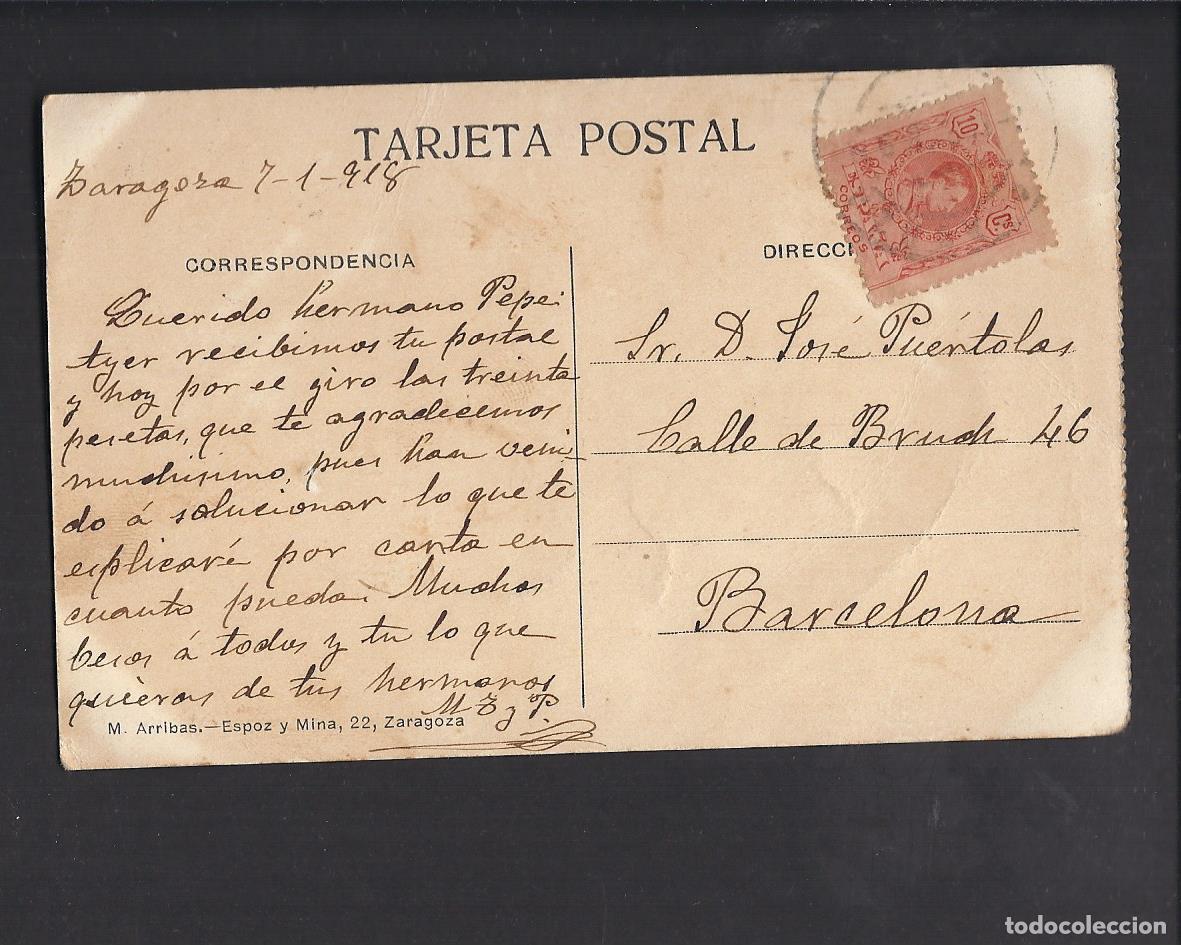 TARJETA POSTAL
Zaragoza 7-1-918
CORRESPONDENCIA
Querido hermano Pepe:
Ayer recibimos tu postal
y hoy por el giro las treinta
pesetas, que te agradecemos
muchisimo, pues han veni-
do á solucionar lo que te
esplicaré por carta en
cuanto pueda. Muchos
besos á todos y tu lo que
quieras de tus hermanos
M Z y P.
M. Arribas.—Espoz y Mina, 22, Zaragoza
DIRECCI
10
Cs
CORREOS
Sr. D. José Puértolas
Calle de Bruch 46
Barcelona
todocoleccion